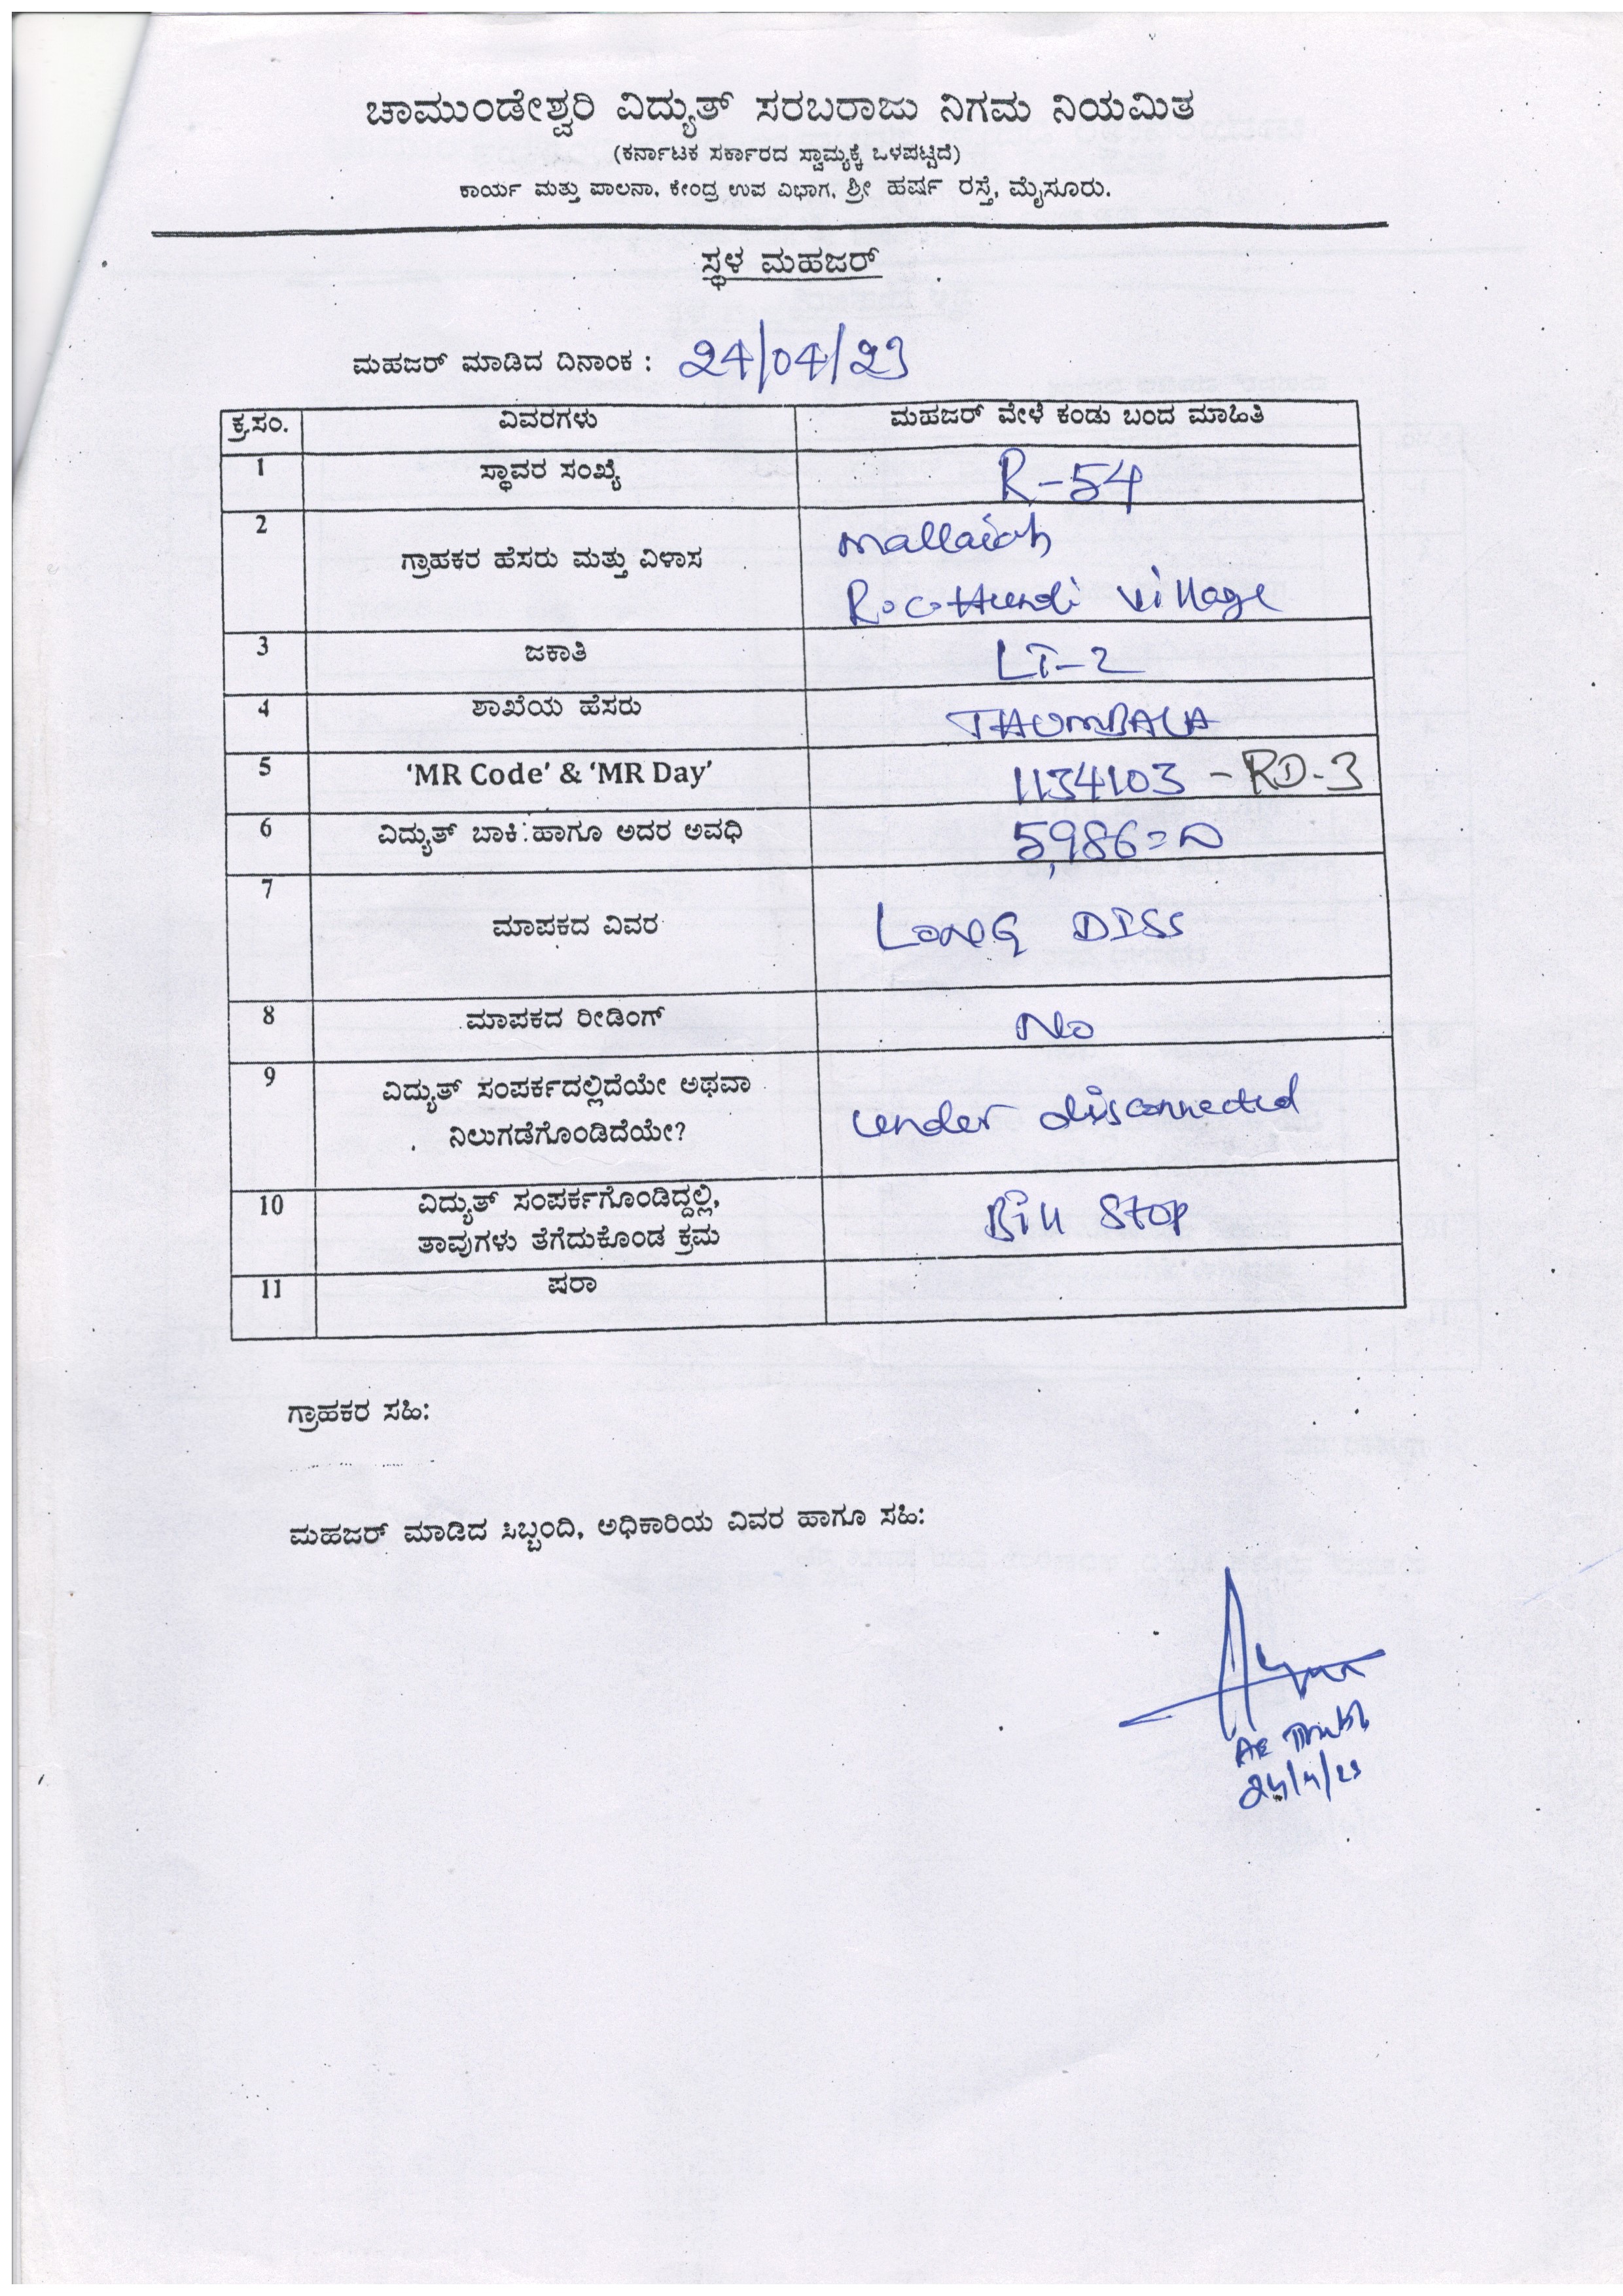 ಚಾಮುಂಡೇಶ್ವರಿ ವಿದ್ಯುತ್ ಸರಬರಾಜು ನಿಗಮ ನಿಯಮಿತ
(ಕರ್ನಾಟಕ ಸರ್ಕಾರದ ಸ್ವಾಮ್ಯಕ್ಕೆ ಒಳಪಟ್ಟಿದೆ)
ಕಾರ್ಯ ಮತ್ತು ಪಾಲನಾ, ಕೇಂದ್ರ ಉಪ ವಿಭಾಗ, ಶ್ರೀ ಹರ್ಷ ರಸ್ತೆ, ಮೈಸೂರು.
ಸ್ಥಳ ಮಹಜರ್
ಮಹಜರ್ ಮಾಡಿದ ದಿನಾಂಕ : 24/04/23
ಕ್ರ.ಸಂ. ವಿವರಗಳು ಮಹಜರ್ ವೇಳೆ ಕಂಡು ಬಂದ ಮಾಹಿತಿ
1 ಸ್ಥಾವರ ಸಂಖ್ಯೆ R-54
2 ಗ್ರಾಹಕರ ಹೆಸರು ಮತ್ತು ವಿಳಾಸ mallaiah
village
3 ಜಕಾತಿ LT-2
4 ಶಾಖೆಯ ಹೆಸರು THUMBALA
5 'MR Code' & 'MR Day' 1134103 - RD-3
6 ವಿದ್ಯುತ್ ಬಾಕಿ ಹಾಗೂ ಅದರ ಅವಧಿ 5,986=00
7 ಮಾಪಕದ ವಿವರ LONG DISS
8 ಮಾಪಕದ ರೀಡಿಂಗ್ No
9 ವಿದ್ಯುತ್ ಸಂಪರ್ಕದಲ್ಲಿದೆಯೇ ಅಥವಾ
ನಿಲುಗಡೆಗೊಂಡಿದೆಯೇ? under disconnected
10 ವಿದ್ಯುತ್ ಸಂಪರ್ಕಗೊಂಡಿದ್ದಲ್ಲಿ,
ತಾವುಗಳು ತೆಗೆದುಕೊಂಡ ಕ್ರಮ Bill Stop
11 ಷರಾ
ಗ್ರಾಹಕರ ಸಹಿ:
ಮಹಜರ್ ಮಾಡಿದ ಸಿಬ್ಬಂದಿ, ಅಧಿಕಾರಿಯ ವಿವರ ಹಾಗೂ ಸಹಿ:
AE
24/4/23